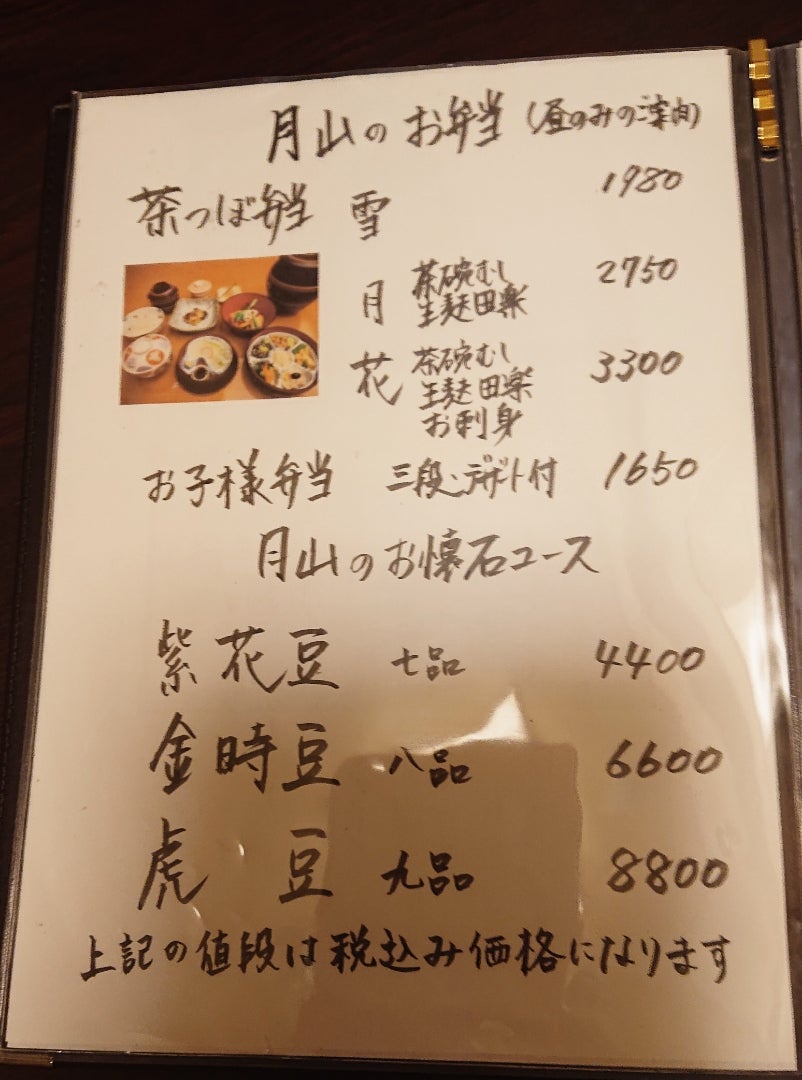 月山のお弁当（昼のみのご案内）
茶つぼ弁当 雪 1980
月 茶碗むし 2750
生麩田楽
花 茶碗むし 3300
生麩田楽
お刺身
お子様弁当 三段・デザート付 1650
月山のお懐石コース
紫花豆 七品 4400
金時豆 八品 6600
虎豆 九品 8800
上記の値段は税込み価格になります